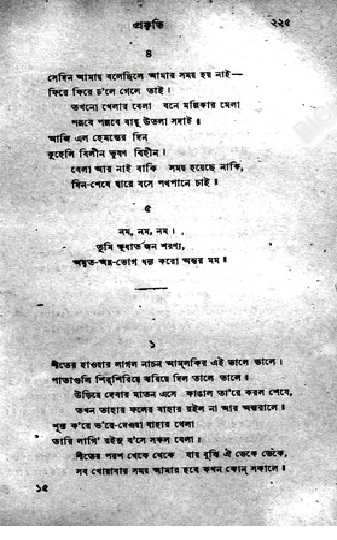 প্রকৃতি ২২৫
৪
সেদিন আমায় বলেছিলে আমার সময় হয় নাই—
ফিরে ফিরে চ'লে গেলে তাই।
তখনো খেলার বেলা বনে মল্লিকার মেলা
পল্লবে পল্লবে বায়ু উতলা সদাই॥
আজি এল হেমন্তের দিন
কুহেলি বিলীন ভূষণ বিহীন।
বেলা আর নাই বাকি সময় হয়েছে নাকি,
দিন-শেষে দ্বারে বসে পথপানে চাই॥
৫
নম, নম, নম।
তুমি ক্ষুধার্ত জন শরণ্য,
অমৃত-অন্ন-ভোগ ধন্য করো অন্তর মম॥
১
শীতের হাওয়ার লাগল নাচন আম্‌লকির এই ডালে ডালে।
পাতাগুলি শির্‌শিরিয়ে ঝরিয়ে দিল তালে তালে॥
উড়িয়ে দেবার মাতন এসে কাঙাল তা'রে করল শেষে,
তখন তাহার ফলের বাহার রইল না আর অন্তরালে॥
শূন্য ক'রে ভ'রে-দেওয়া যাহার খেলা
তারি লাগি' রইনু ব'সে সকল বেলা।
শীতের পরশ থেকে থেকে যায় বুঝি ঐ ডেকে ডেকে,
সব খোয়াবার সময় আমার হবে কখন কোন্ সকালে॥
১৫